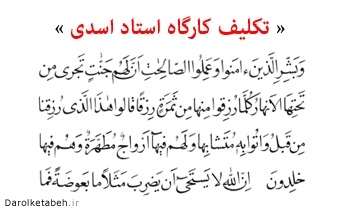 « تکلیف کارگاه استاد اسدی »
وَبَشِّرِ الَّذِینَ ءامَنُوا وَعَمِلُوا الصَّالِحَاتِ اَنَّ لَهُمْ جَنّاتٍ تَجْری مِن
تَحْتِهَا الاَنهارُ کُلَّمَا رُزِقُوا مِنهَا مِن ثَمَرَةٍ رِزقًا قالُوا هٰذَا الَّذی رُزِقنا
مِن قَبلُ وَاُتُوا بِهِ مُتَشَابِهًا وَلَهُم فیهَا اَزواجٌ مُطَهَّرَةٌ وَهُم فیها
خٰلِدُونَ اِنَّ اللهَ لا یَستَحیی اَن یَضرِبَ مَثَلاً ما بَعُوضَةً فَمَا
Darolketabeh.ir